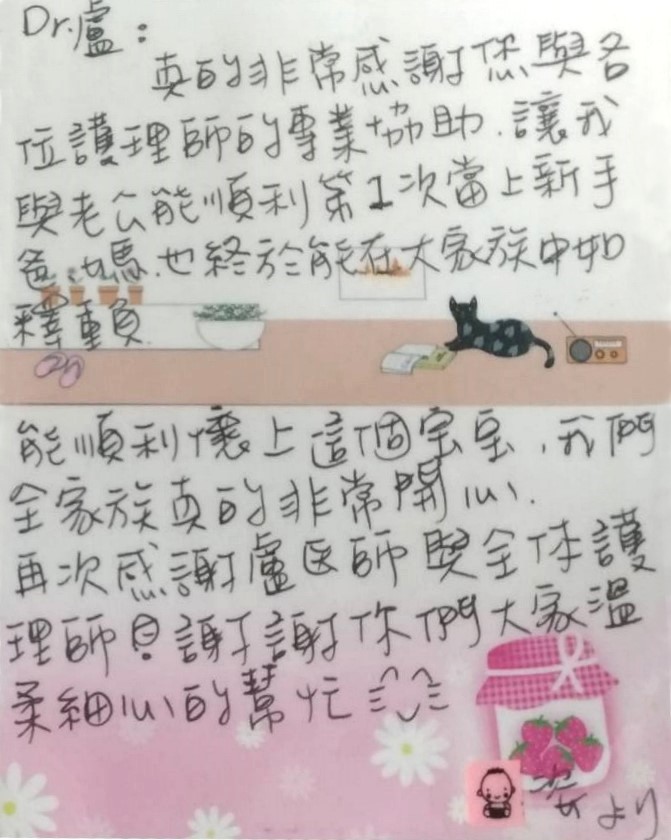 Dr.盧：
真的非常感謝您與各
位護理師的專業協助，讓我
與老公能順利第1次當上新手
爸.媽.也終於能在大家族中如
釋重負
能順利懷上這個宝宝，我們
全家族真的非常開心.
再次感謝盧医師與全体護
理師!謝謝你們大家溫
柔細心的幫忙
姿より